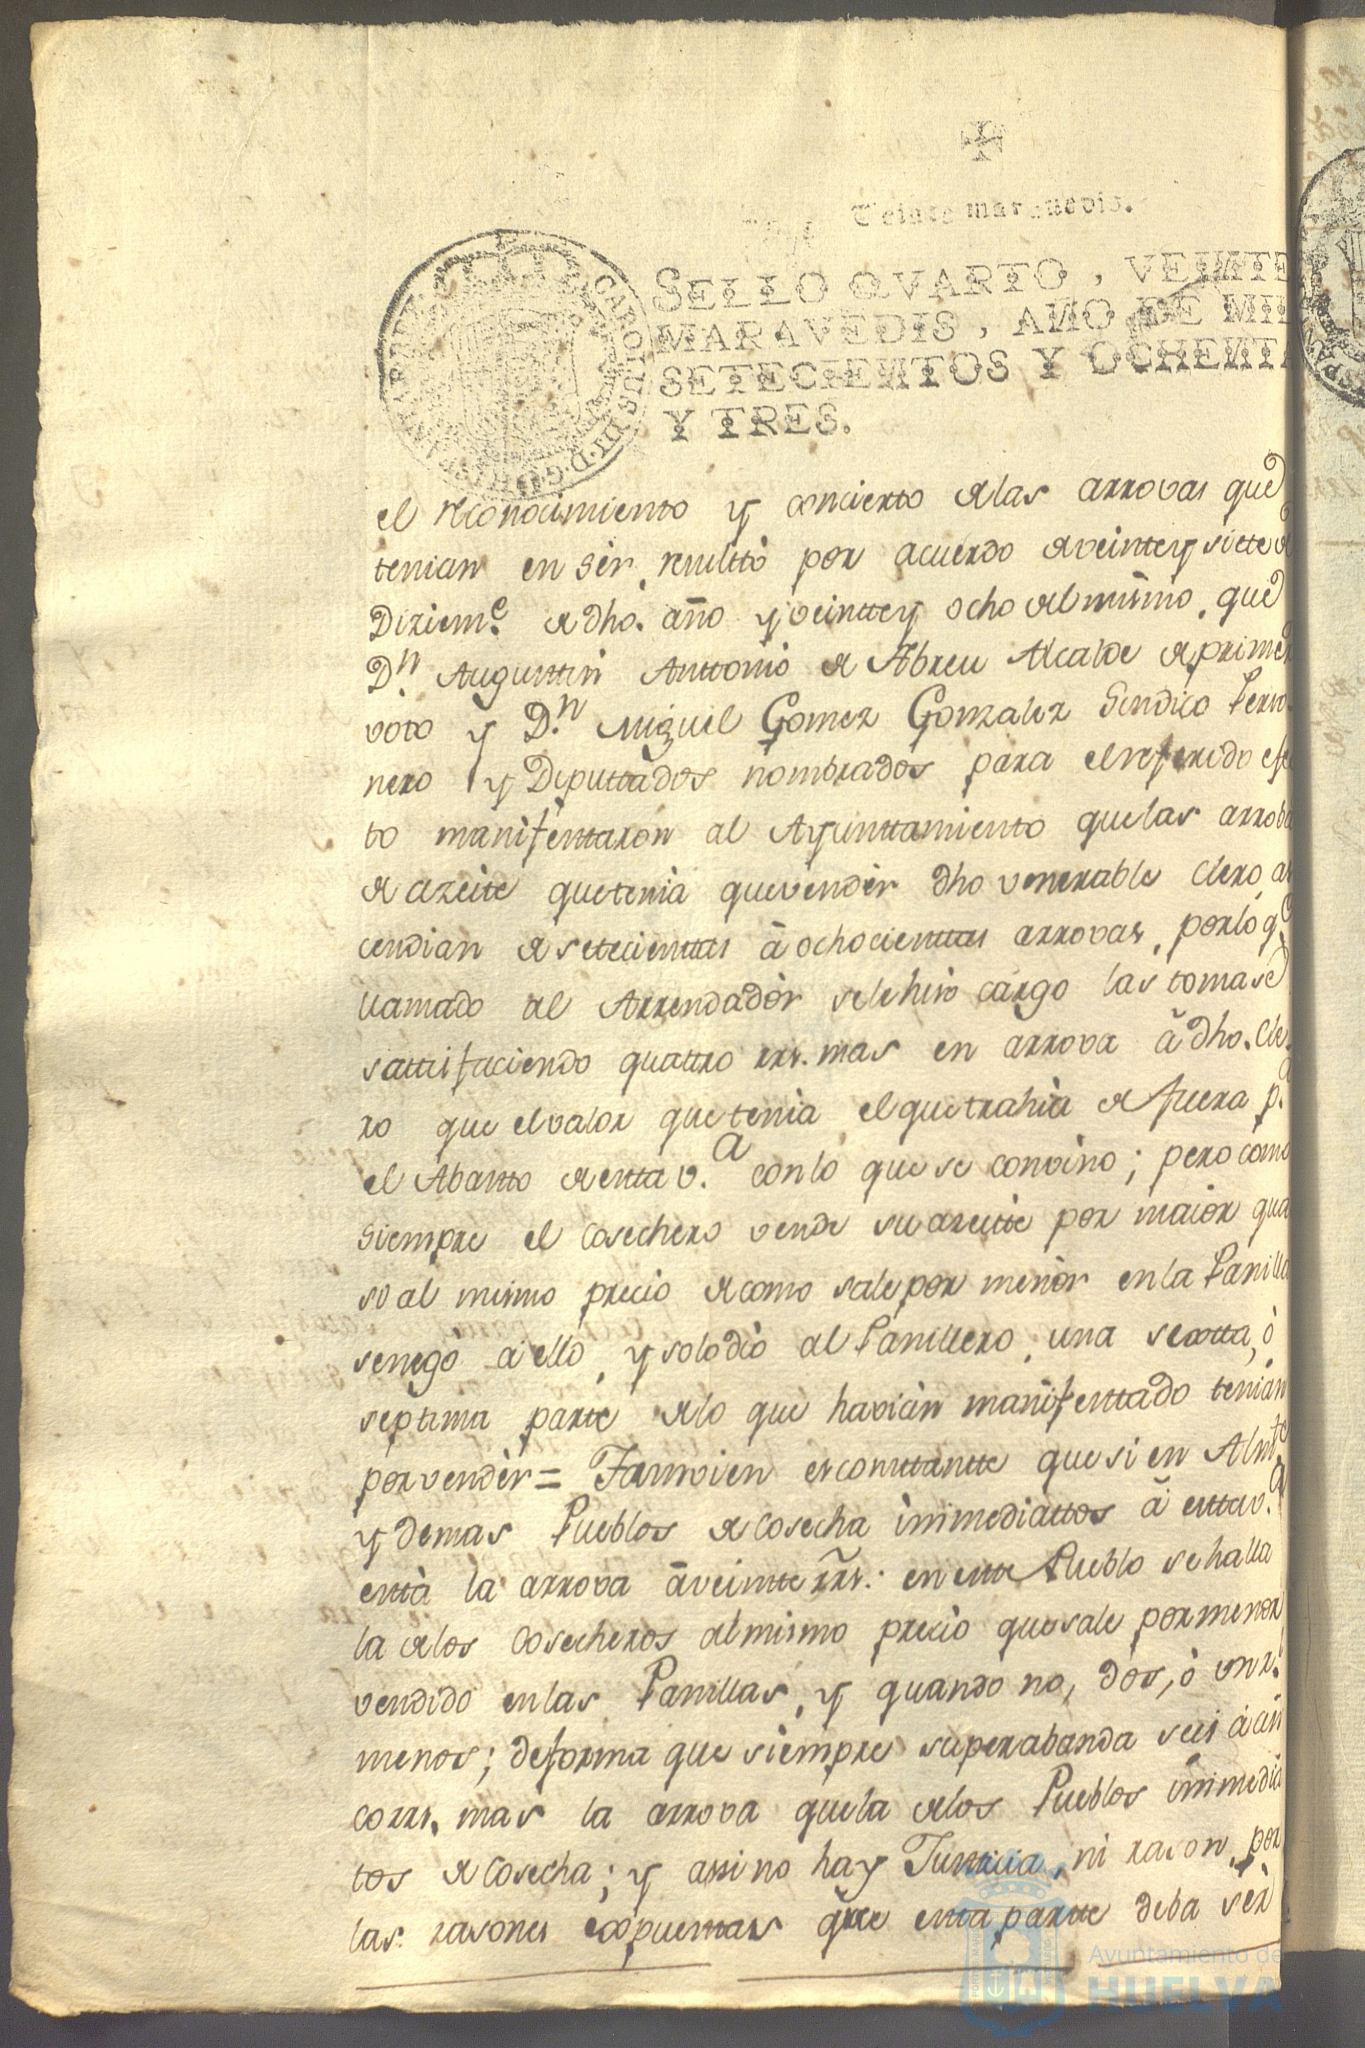 Veinte maravedis.
SELLO QVARTO, VEINTE
MARAVEDIS, AÑO DE MIL
SETECIENTOS Y OCHENTA
Y TRES.
CAROLUS III D. G. HISPANIAR
el reconocimiento y concierto de las arrovas que
tenian en ser, resultto por acuerdo de veinte y siette de
Diziem.e de dho. año y veintte y ocho del mismo, que
D.n Augustin Anttonio de Abreu Alcalde de primer
voto y D.n Miguel Gomez Gonzalez Sindico Perso
nero y Diputtados nombrados para el referido efec
to manifestaron al Ayunttamiento que las arrobas
de azeite que tenia que vender dho venerable Clero, as
cendian de setecienttas â ochocienttas arrovas, por lo q.e
llamado al Arrendador se le hizo cargo las tomase
sattisfaciendo quattro rrs. mas en arrova â dho. Cle
ro que el valor que tenia el que trahia de fuera p.a
el Abasto de esta v.a con lo que se convino; pero como
siempre el Cosechero vende su azeitte por maior qua
si al mismo precio de como sale por menòr en la Panilla
se negò a ello, y solo diò al Panillero, una sexta, ò
septima parte de lo que havian manifestado tenian
por vender = Tamvien es constantte que si en Alm.te
y demas Pueblos de Cosecha inmediattos â esta v.a
està la arrova â veintte rrs. en este Pueblo se halla
la de los Cosecheros al mismo precio que sale por menor
vendido en las Panillas, y quando no, dos, ò un r.l
menos; de forma que siempre superabanda seis a cin
co rrs. mas la arrova que la de los Pueblos inmedia
tos de Cosecha; y assi no hay Justicia, ni razon, por
las razones expuestas que esta partte deba sèr
Ayuntamiento de
HUELVA